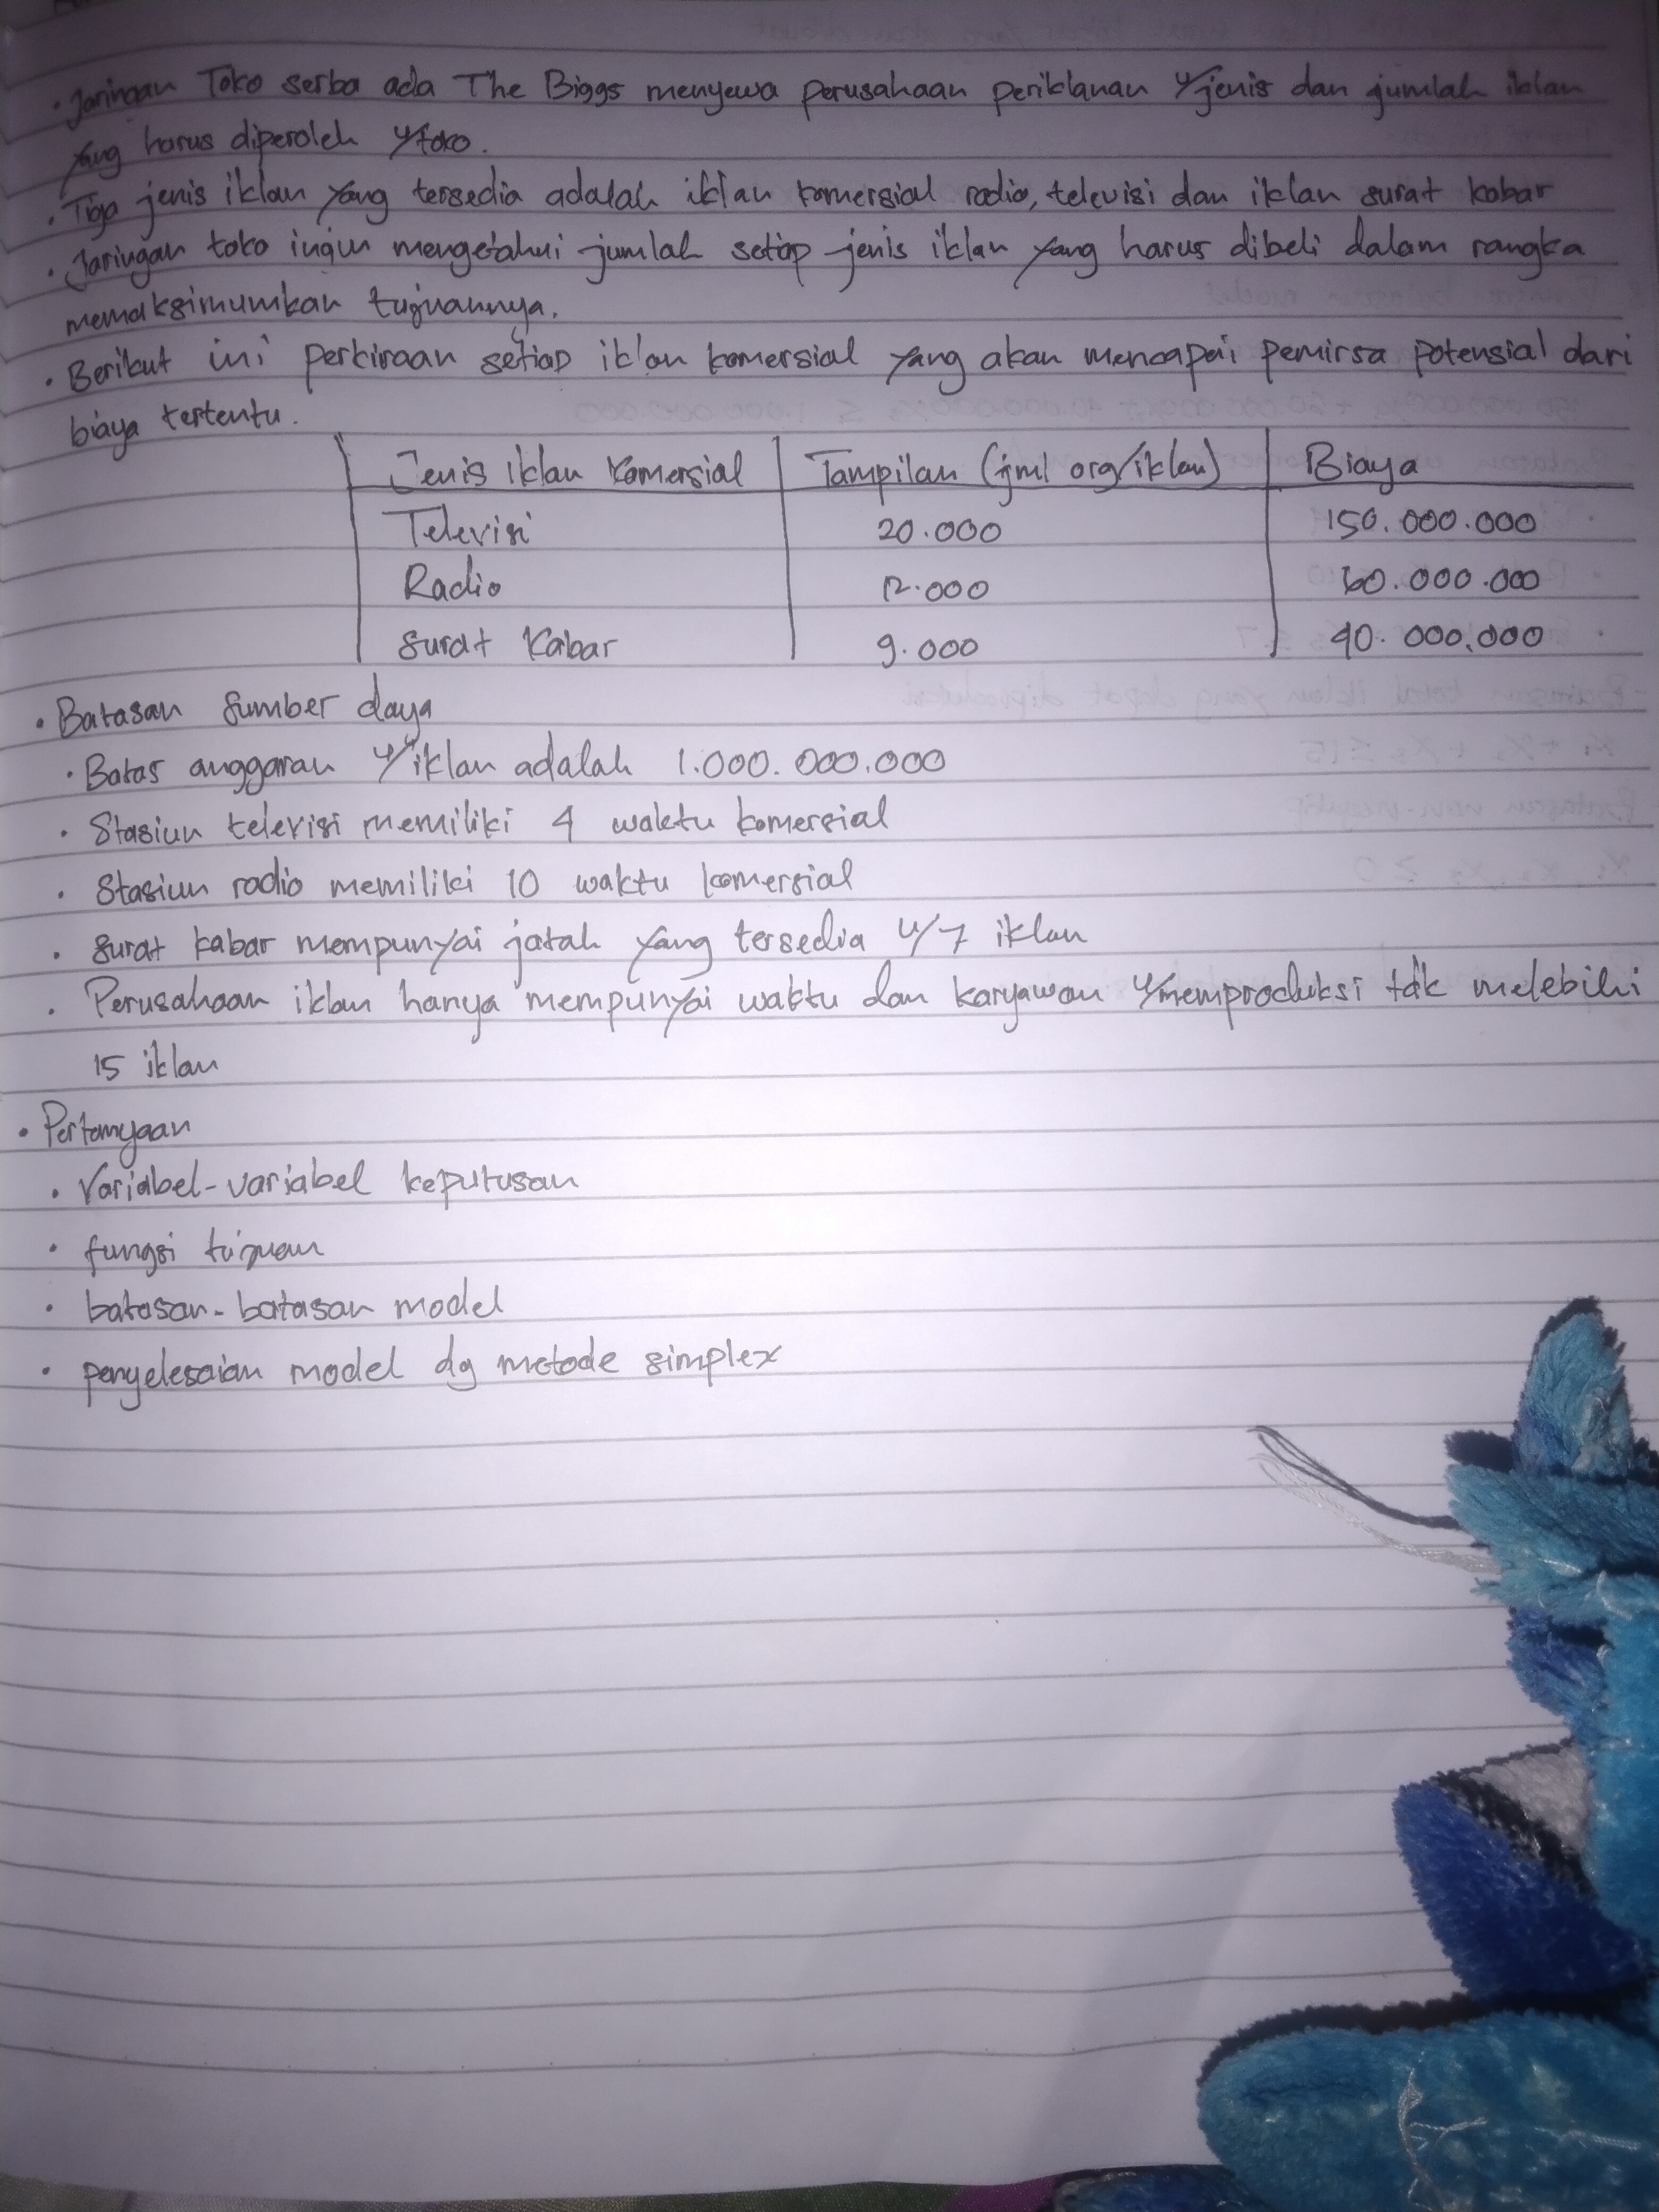 · Jaringan Toko serba ada The Biggs menyewa perusahaan periklanan u/jenis dan jumlah iklan
yang harus diperoleh u/toko.
· Tiga jenis iklan yang tersedia adalah iklan komersial radio, televisi dan iklan surat kabar
· Jaringan toko ingin mengetahui jumlah setiap jenis iklan yang harus dibeli dalam rangka
memaksimumkan tujuannya.
· Berikut ini perkiraan setiap iklan komersial yang akan mencapai pemirsa potensial dari
biaya tertentu.
Jenis iklan komersial Tampilan (jml org/iklan) Biaya
Televisi 20.000 150.000.000
Radio 12.000 60.000.000
Surat Kabar 9.000 40.000.000
· Batasan Sumber daya
· Batas anggaran u/iklan adalah 1.000.000.000
· Stasiun televisi memiliki 4 waktu komersial
· Stasiun radio memiliki 10 waktu komersial
· surat kabar mempunyai jatah yang tersedia u/7 iklan
· Perusahaan iklan hanya mempunyai waktu dan karyawan u/memproduksi tdk melebihi
15 iklan
· Pertanyaan
· Variabel-variabel keputusan
· fungsi tujuan
· batasan-batasan model
· penyelesaian model dg metode simplex